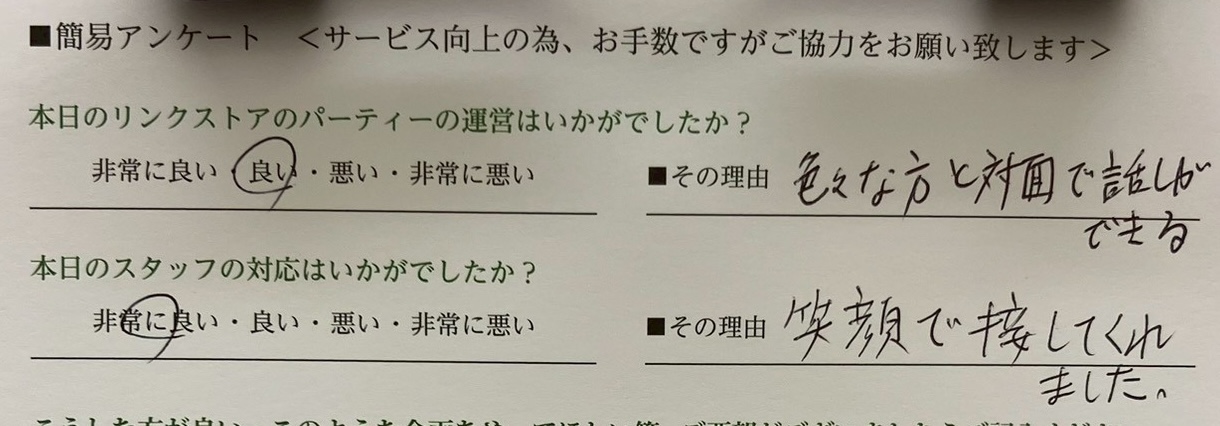 ■簡易アンケート　＜サービス向上の為、お手数ですがご協力をお願い致します＞
本日のリンクストアのパーティーの運営はいかがでしたか？
非常に良い・良い・悪い・非常に悪い　■その理由　色々な方と対面で話しが
できる
本日のスタッフの対応はいかがでしたか？
非常に良い・良い・悪い・非常に悪い　■その理由　笑顔で接してくれ
ました。